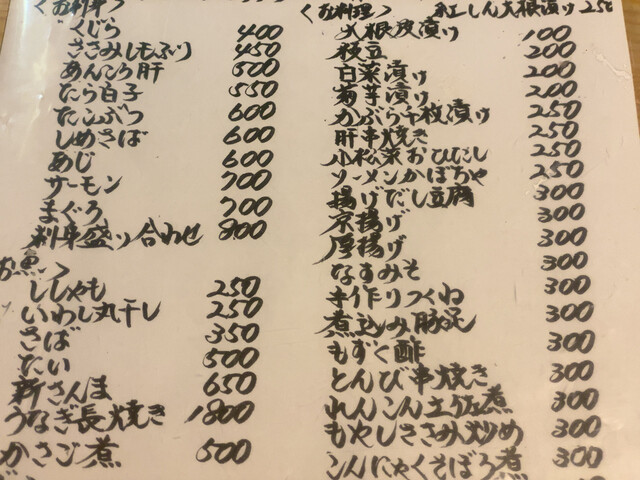 〈お刺身〉
くじら 400
ささみしもふり 450
あんこう肝 500
たら白子 550
たこぶつ 600
しめさば 600
あじ 600
サーモン 700
まぐろ 700
刺身盛り合わせ 800
お魚〉
ししゃも 250
いわし丸干し 250
さば 350
たい 500
新さんま 650
うなぎ長焼き 1800
かさご煮 500
〈お料理〉 紅しん大根漬け 250
大根浅漬け 100
枝豆 200
白菜漬け 200
菊芋漬け 200
かぶら千枚漬け 250
肝串焼き 250
小松菜おひだし 250
ソーメンかぼちゃ 250
揚げだし豆腐 300
京揚げ 300
厚揚げ 300
なすみそ 300
手作りつくね 300
煮込み豚足 300
もずく酢 300
とんび串焼き 300
れんこん土佐煮 300
もやしささみ炒め 300
こんにゃくそぼろ煮 300